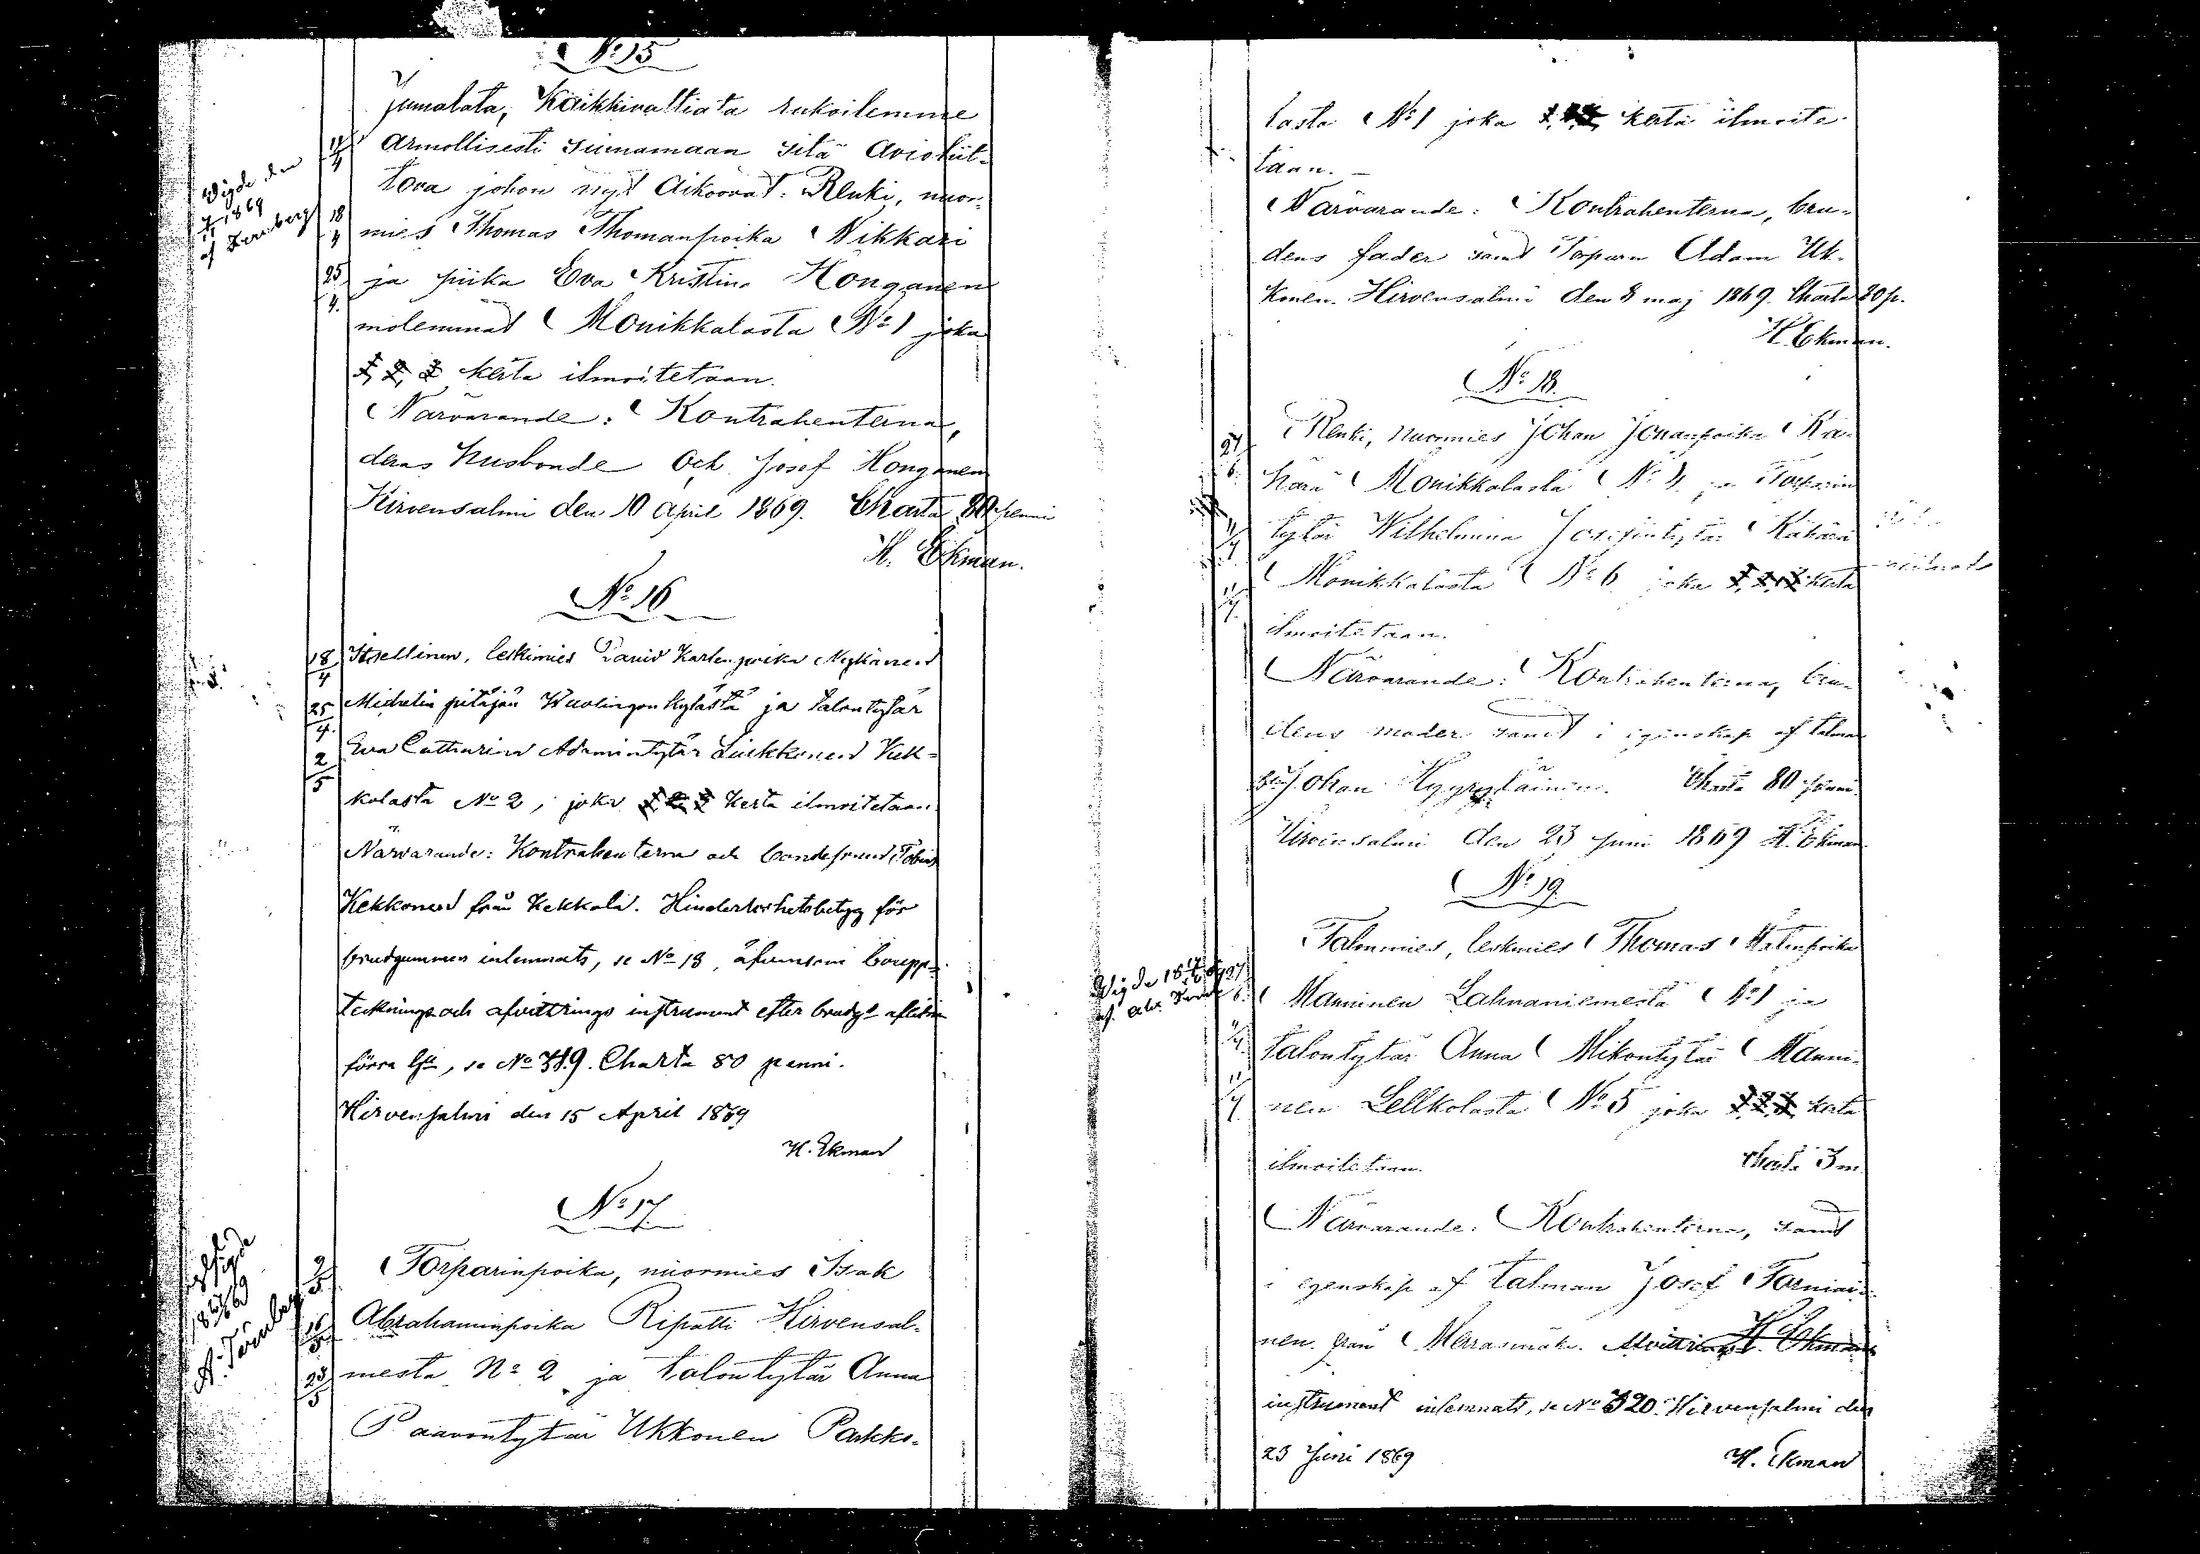 No 15
Jumalata, Kaikkivaltiata rukoilemme
11/4 armollisesti siunamaan sitä aviolüt-
Wigde den
toa johon nyt aikoovat: Renki, nuor-
1869
af Ternberg
18/4 mies Thomas Thomanpoika Nikkari
25/4 ja piika Eva Kristina Honganen
molemmat Monikkalasta No 1 joka
1, 2, 3 kerta ilmoitetaan.
Närvarande: Kontrahenterna,
deras husbonde och Josef Honganen
Hirvensalmi den 10 April 1869. Charta 80 penni
H. Ekman.
No 16
18/4 Itsellinen, leskimies David Karlenpoika Nykänen
25/4 Michelin pitäjän Wuolingon kylästä ja talontytär
2/5 Eva Catharina Adamintytär Liukkonen Kek-
kolasta No 2, joka 1 2 3 kerta ilmoitetaan.
Närvarande: Kontrahenterna och bondefränd Tobias
Kekkonen från Kekkola. Hinderlöshetsbetyg för
brudgummen inlemnats, se No 13, äfvensom boupp-
tecknings och afvittrings instrument efter brudgs aflidna
förra hu, se No 319. Charta 80 penni.
Hirvensalmi den 15 April 1869
H. Ekman
No 17
2/5 Torparinpoika, nuormies Isak
1869
A. Törnberg
16/5 Abrahaminpoika Ripatti Hirvensal-
23/5 mesta No 2 ja talontytär Anna
Paavontytär Ukkonen Parkko-
lasta No 1 joka 1, 2, 3, kerta ilmoite-
taan.
Närvarande: Kontrahenterna, bru-
dens fader samt Torparn Adam Uk-
konen. Hirvensalmi den 8 maj 1869. Charta 80 p.
H. Ekman.
No 18.
27/6 Renki, nuormies Johan Johanpoika Kä-
härä Monikkalasta No 4 ja Torparin
tytär Wilhelmina Josefintytär Kähärä
Monikkalasta No 6 joka 1, 2, 3 kerta
ilmoitetaan.
Närvarande: Kontrahenterna, bru-
dens moder samt i egenskap af talman
Johan Hyyryläinen. Charta 80 penni.
Hirvensalmi den 23 Juni 1869 H. Ekman
No 19.
Talonmies, leskmies Thomas Matinpoika
Wigde
27/6 Manninen Lahnaniemestä No 1 ja
talontytär Anna Mikontytär Manni-
nen Lellkolasta No 5 joka 1, 2, 3, kerta
ilmoitetaan. Charta 3 m.
Närvarande: Kontrahenterna, samt
i egenskap af talman Josef Tarniai-
nen från Marrasmäki. Afvittrings H. Ekman
instrument inlemnats, se No 320. Hirvensalmi den
23 Juni 1869 H. Ekman